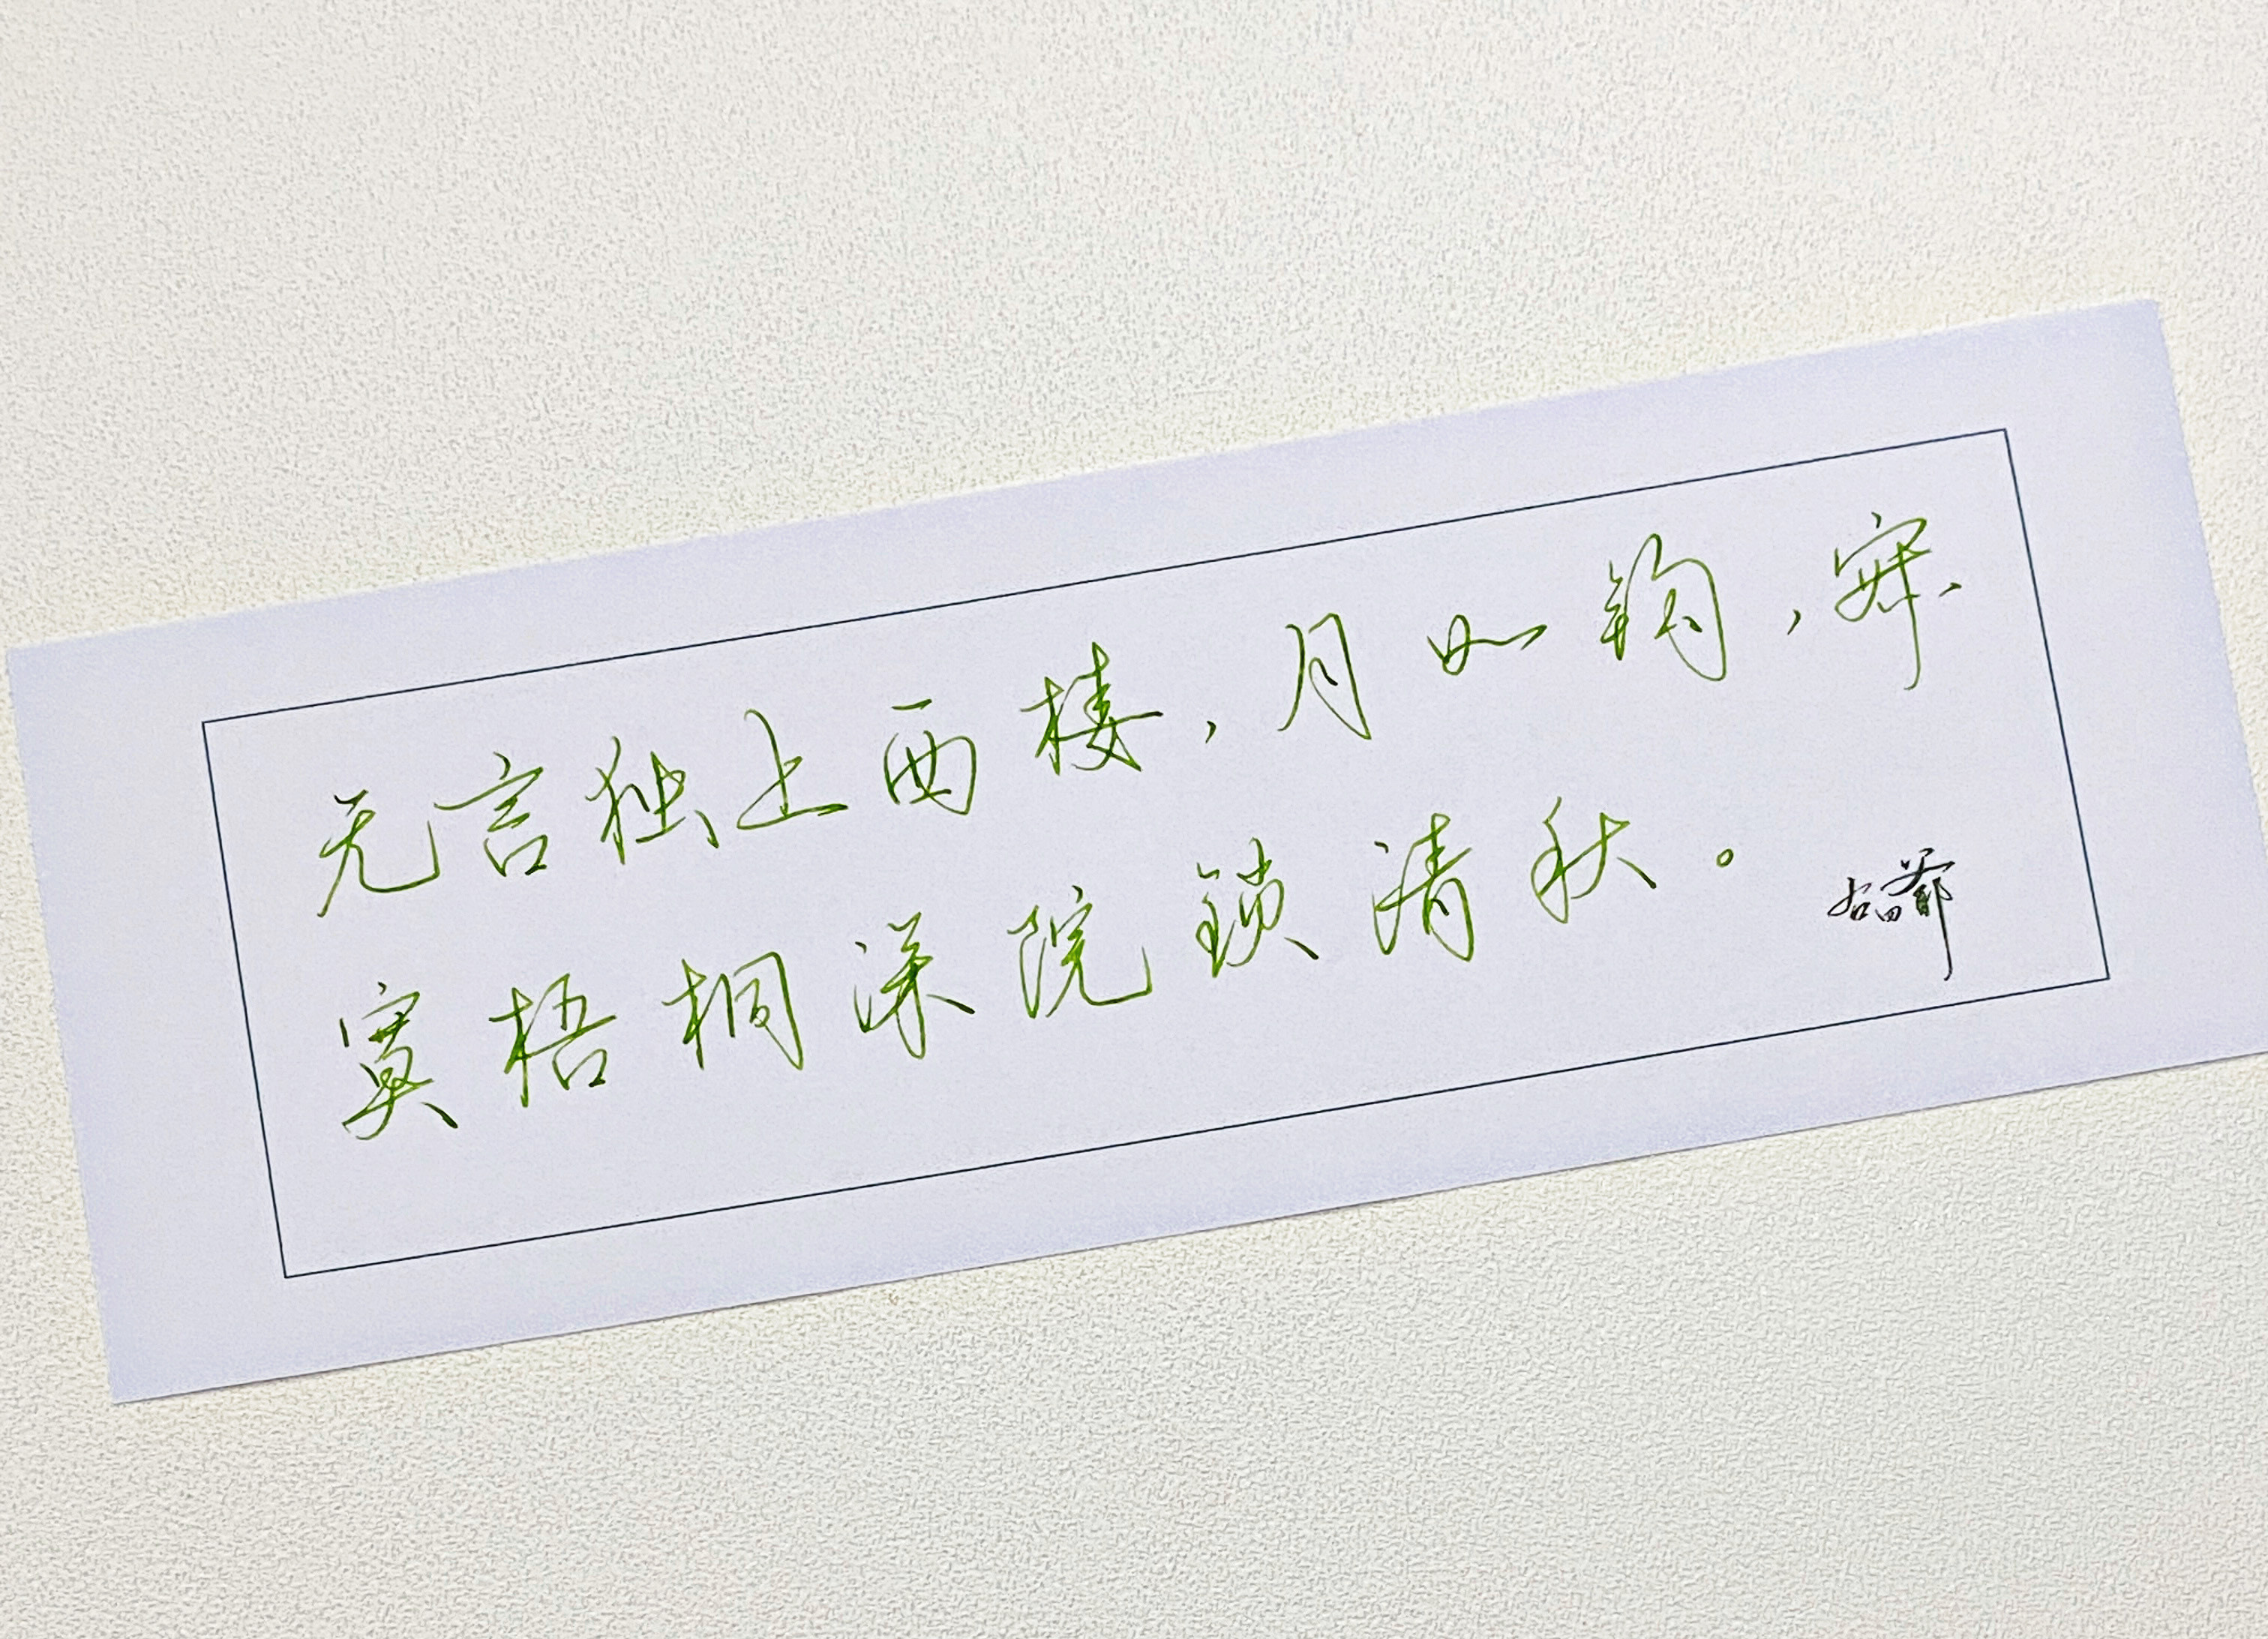 无言独上西楼，月如钩，寂
寞梧桐深院锁清秋。